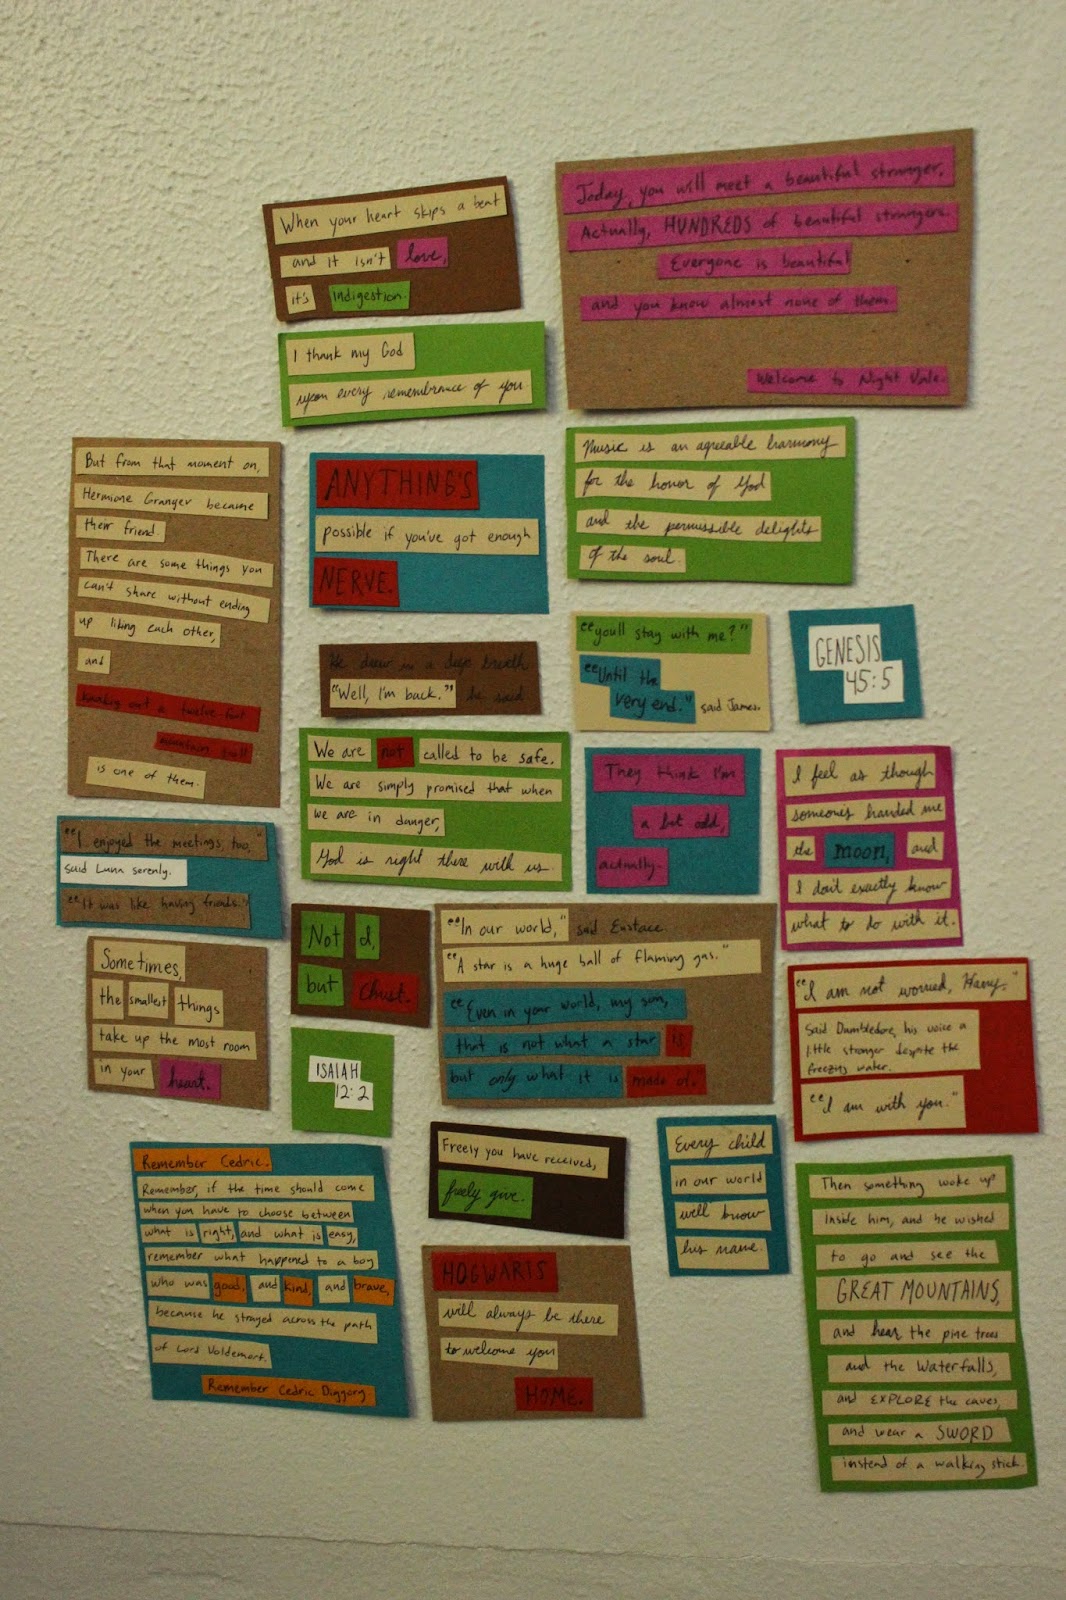 When your heart skips a beat
and it isn't love,
it's indigestion.
Today, you will meet a beautiful stranger.
Actually, HUNDREDS of beautiful strangers.
Everyone is beautiful
and you know almost none of them.
Welcome to Night Vale.
I thank my God
upon every remembrance of you
But from that moment on,
Hermione Granger became
their friend.
There are some things you
can't share without ending
up liking each other,
and
knocking out a twelve-foot
mountain troll
is one of them.
ANYTHING'S
possible if you've got enough
NERVE.
Music is an agreeable harmony
for the honor of God
and the permissible delights
of the soul.
He drew in a deep breath
"Well, I'm back." he said
"you'll stay with me?"
"Until the
very end." said James.
GENESIS
45:5
We are not called to be safe.
We are simply promised that when
we are in danger,
God is right there with us.
They think I'm
a bit odd,
actually.
I feel as though
someone's handed me
the moon, and
I don't exactly know
what to do with it.
"I enjoyed the meetings, too,"
said Luna serenly.
"It was like having friends."
Sometimes,
the smallest things
take up the most room
in your heart.
Not I,
but Christ.
ISAIAH
12:2
"In our world," said Eustace.
"A star is a huge ball of flaming gas."
"Even in your world, my son,
that is not what a star is
but only what it is made of."
"I am not worried, Harry."
Said Dumbledore, his voice a
little stronger despite the
freezing water.
"I am with you."
Remember Cedric.
Remember, if the time should come
when you have to choose between
what is right, and what is easy,
remember what happened to a boy
who was good, and kind, and brave,
because he strayed across the path
of Lord Voldemort.
Remember Cedric Diggory
Freely you have received,
freely give.
HOGWARTS
will always be there
to welcome you
HOME.
Every child
in our world
will know
his name.
Then something woke up
inside him, and he wished
to go and see the
GREAT MOUNTAINS,
and hear the pine trees
and the waterfalls,
and EXPLORE the caves,
and wear a SWORD
instead of a walking stick.